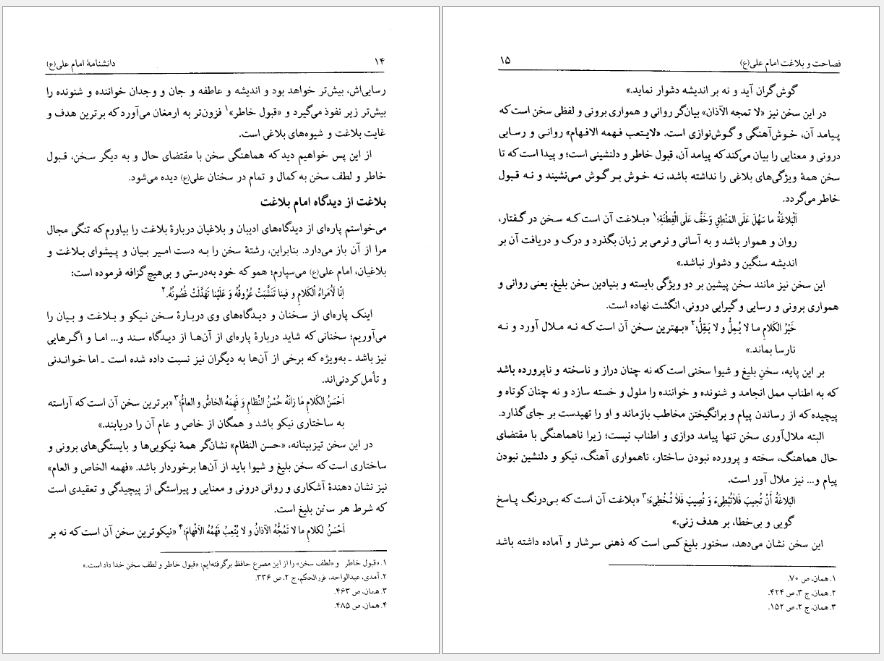 ۱۴ دانشنامهٔ امام علی(ع)
رسایی‌اش، بیش‌تر خواهد بود و اندیشه و عاطفه و جان و وجدان خواننده و شنونده را
بیش‌تر زیر نفوذ می‌گیرد و «قبول خاطر»۱ فزون‌تر به ارمغان می‌آورد که برترین هدف و
غایت بلاغت و شیوه‌های بلاغی است.
از این پس خواهیم دید که هماهنگی سخن با مقتضای حال و به دیگر سخن، قبول
خاطر و لطف سخن به کمال و تمام در سخنان علی(ع) دیده می‌شود.
بلاغت از دیدگاه امام بلاغت
می‌خواستم پاره‌ای از دیدگاه‌های ادیبان و بلاغیان دربارهٔ بلاغت را بیاورم که تنگی مجال
مرا از آن باز می‌دارد. بنابراین، رشتهٔ سخن را به دست امیر بیان و پیشوای بلاغت و
بلاغیان، امام علی(ع) می‌سپارم؛ همو که خود به‌درستی و بی‌هیچ گزافه فرموده است:
اِنّا لَأُمَراءُ الْکَلامِ وَ فینا تَنَشَّبَتْ عُرُوقُهُ وَ عَلَیْنا تَهَدَّلَتْ غُصُونُهُ.۲
اینک پاره‌ای از سخنان و دیدگاه‌های وی دربارهٔ سخن نیکو و بلاغت و بیان را
می‌آوریم؛ سخنانی که شاید دربارهٔ پاره‌ای از آن‌ها از دیدگاه سند و... اما و اگرهایی
نیز باشد ـ به‌ویژه که برخی از آن‌ها به دیگران نیز نسبت داده شده است ـ اما خواندنی
و تأمل کردنی‌اند.
اَحْسَنُ الکَلامِ مَا زانَهُ حُسْنُ النِّظامِ وَ فَهِمَهُ الخاصُّ و العامُّ؛۳ «برترین سخن آن است که آراسته
به ساختاری نیکو باشد و همگان از خاص و عام آن را دریابند.»
در این سخن تیزبینانه، «حسن النظام» نشان‌گر همهٔ نیکویی‌ها و بایستگی‌های برونی و
ساختاری است که سخن بلیغ و شیوا باید از آن‌ها برخوردار باشد. «فهمه الخاص و العام»
نیز نشان دهندهٔ آشکاری و روانی درونی و معنایی و پیراستگی از پیچیدگی و تعقیدی است
که شرط هر سخن بلیغ است.
اَحْسَنُ لکَلامِ ما لا تَمُجُّهُ الآذانُ و لا یُتْعِبُ فَهْمُهُ الاَفْهامَ؛۴ «نیکوترین سخن آن است که نه بر
۱. «قبول خاطر و «لطف سخن» را از این مصرع حافظ برگرفته‌ایم: «قبول خاطر و لطف سخن خدا داد است.»
۲. آمدی، عبدالواحد، غررالحکم، ج ۲، ص ۳۳۶.
۳. همان، ص ۴۶۳.
۴. همان، ص ۴۸۵.
فصاحت و بلاغت امام علی(ع) ۱۵
گوش گران آید و نه بر اندیشه دشوار نماید.»
در این سخن نیز «لا تمجه الآذان» بیان‌گر روانی و همواری برونی و لفظی سخن است که
پیامد آن، خوش‌آهنگی و گوش‌نوازی است. «لایتعب فهمه الافهام» روانی و رسایی
درونی و معنایی را بیان می‌کند که پیامد آن، قبول خاطر و دلنشینی است؛ و پیدا است که تا
سخن همهٔ ویژگی‌های بلاغی را نداشته باشد، نه خوش بر گوش می‌نشیند و نه قبول
خاطر می‌گردد.
اَلْبَلاغَةُ ما سَهُلَ عَلَی المَنْطِقِ وَ خَفَّ عَلَی الْفِطْنَةِ؛۱ «بلاغت آن است که سخن در گفتار،
روان و هموار باشد و به آسانی و نرمی بر زبان بگذرد و درک و دریافت آن بر
اندیشه سنگین و دشوار نباشد.»
این سخن نیز مانند سخن پیشین بر دو ویژگی بایسته و بنیادین سخن بلیغ، یعنی روانی و
همواری برونی و رسایی و گیرایی درونی، انگشت نهاده است.
خَیْرُ الکَلامِ ما لا یُمِلُّ و لا یَقِلُّ؛۲ «بهترین سخن آن است که نه ملال آورد و نه
نارسا بماند.»
بر این پایه، سخن بلیغ و شیوا سخنی است که نه چنان دراز و ناسخته و ناپرورده باشد
که به اطناب ممل انجامد و شنونده و خواننده را ملول و خسته سازد و نه چنان کوتاه و
پیچیده که از رساندن پیام و برانگیختن مخاطب بازماند و او را تهیدست بر جای گذارد.
البته ملال‌آوری سخن تنها پیامد درازی و اطناب نیست؛ زیرا ناهماهنگی با مقتضای
حال هماهنگ، سخته و پرورده نبودن ساختار، ناهمواری آهنگ، نیکو و دلنشین نبودن
پیام و... نیز ملال آور است.
اَلبَلاغَةُ أَنْ تُجیبَ فَلاتُبْطِیءَ وَ تُصیبَ فَلاَ تُخْطِیءَ؛۳ «بلاغت آن است که بی‌درنگ پاسخ
گویی و بی‌خطا، بر هدف زنی.»
این سخن نشان می‌دهد، سخنور بلیغ کسی است که ذهنی سرشار و آماده داشته باشد
۱. همان، ص ۷۰.
۲. همان، ج ۳، ص ۴۲۴.
۳. همان، ج ۲، ص ۱۵۲.